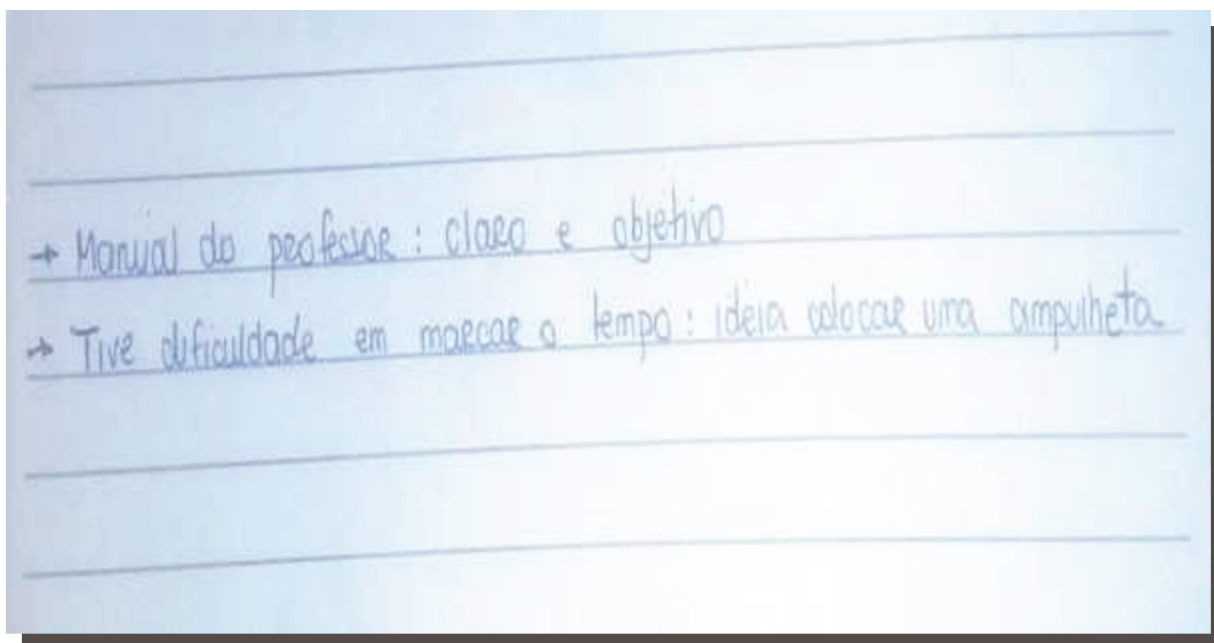 → Manual do professor : claro e objetivo
→ Tive dificuldade em marcar o tempo : ideia colocar uma ampulheta